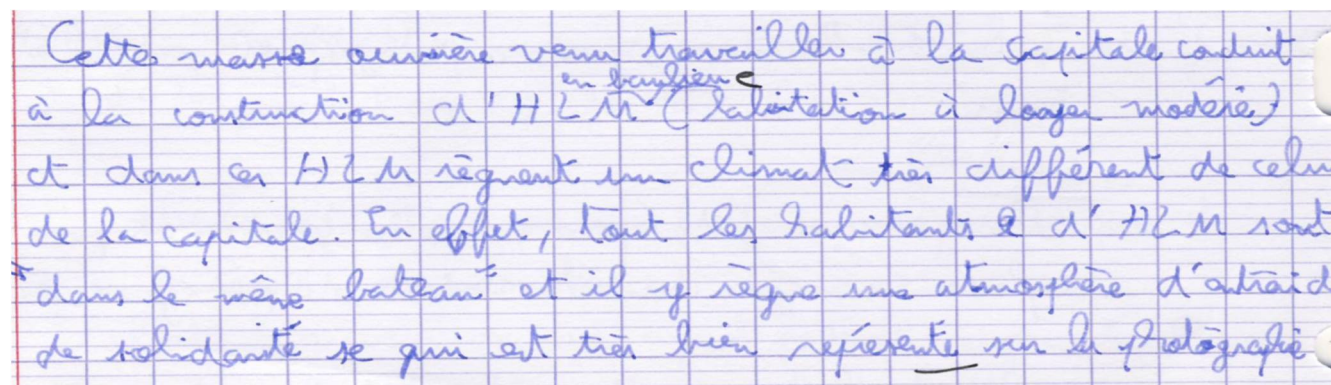 Cette masse ouvrière venu travailler à la capitale conduit
en banlieue
à la construction d'HLM (habitation à loyer modéré)
et dans ces HLM règnent un climat très différent de celui
de la capitale. En effet, tout les habitants d'HLM sont
"dans le même bateau" et il y règne une atmosphère d'entraid
de solidarité se qui est très bien représenté sur la photographie